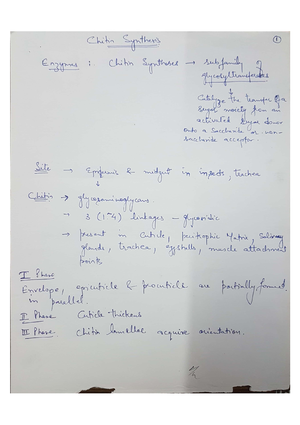 Chitin Synthesis
1
Enzymes : Chitin Synthases → subfamily of
glycosyltransferases
↓
Catalyze the transfer of a
sugar moiety from an
activated sugar donor
onto a saccharide or non-
saccharide acceptor.
Site → Epidermis & midgut in insects, trachea
↓
Chitin → glycosaminoglycans
→ β (1-4) linkages - glycosidic
→ present in Cuticle, peritrophic Matrix, Salivary
glands, trachea, eggshells, muscle attachment
points
I Phase
Envelope, epicuticle & procuticle are partially formed
in parallel.
II Phase Cuticle thickens
III Phase Chitin lamellae acquire orientation.